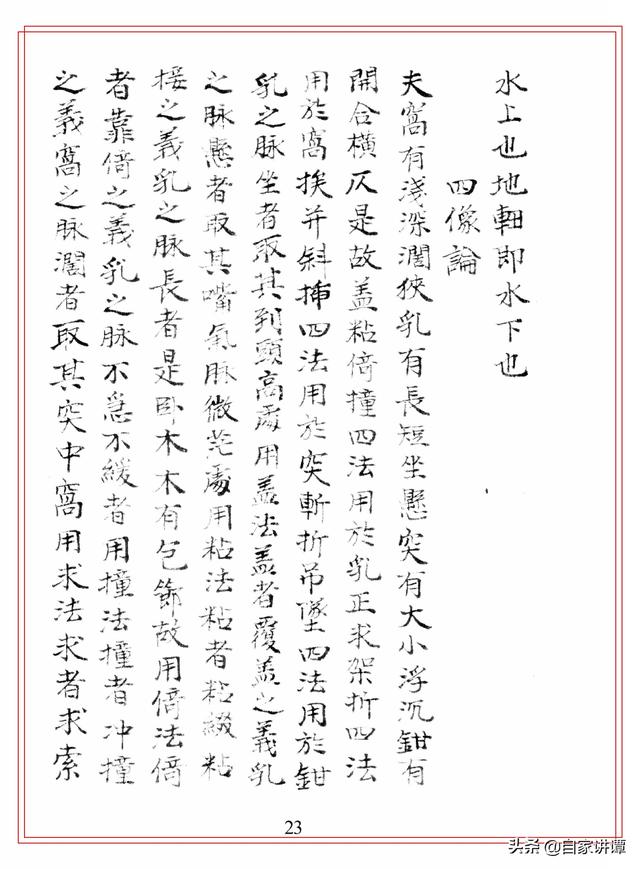 水上也地軸即水下也
四像論
夫窩有淺深濶狹乳有長短坐懸突有大小浮沉鉗有
開合橫仄是故盖粘倚撞四法用於乳正求架折四法
用於窩挨并斜揷四法用於突斬折吊墜四法用於鉗
乳之脉坐者取其到頭高處用盖法盖者覆盖之義乳
之脉懸者取其嘴氣脉微茫處用粘法粘者粘綴粘
接之義乳之脉長者是卧木木有包節故用倚法倚
者靠倚之義乳之脉不急不緩者用撞法撞者冲撞
之義窩之脉濶者取其突中窩用求法求者求索
23
头条 @自家讲谭